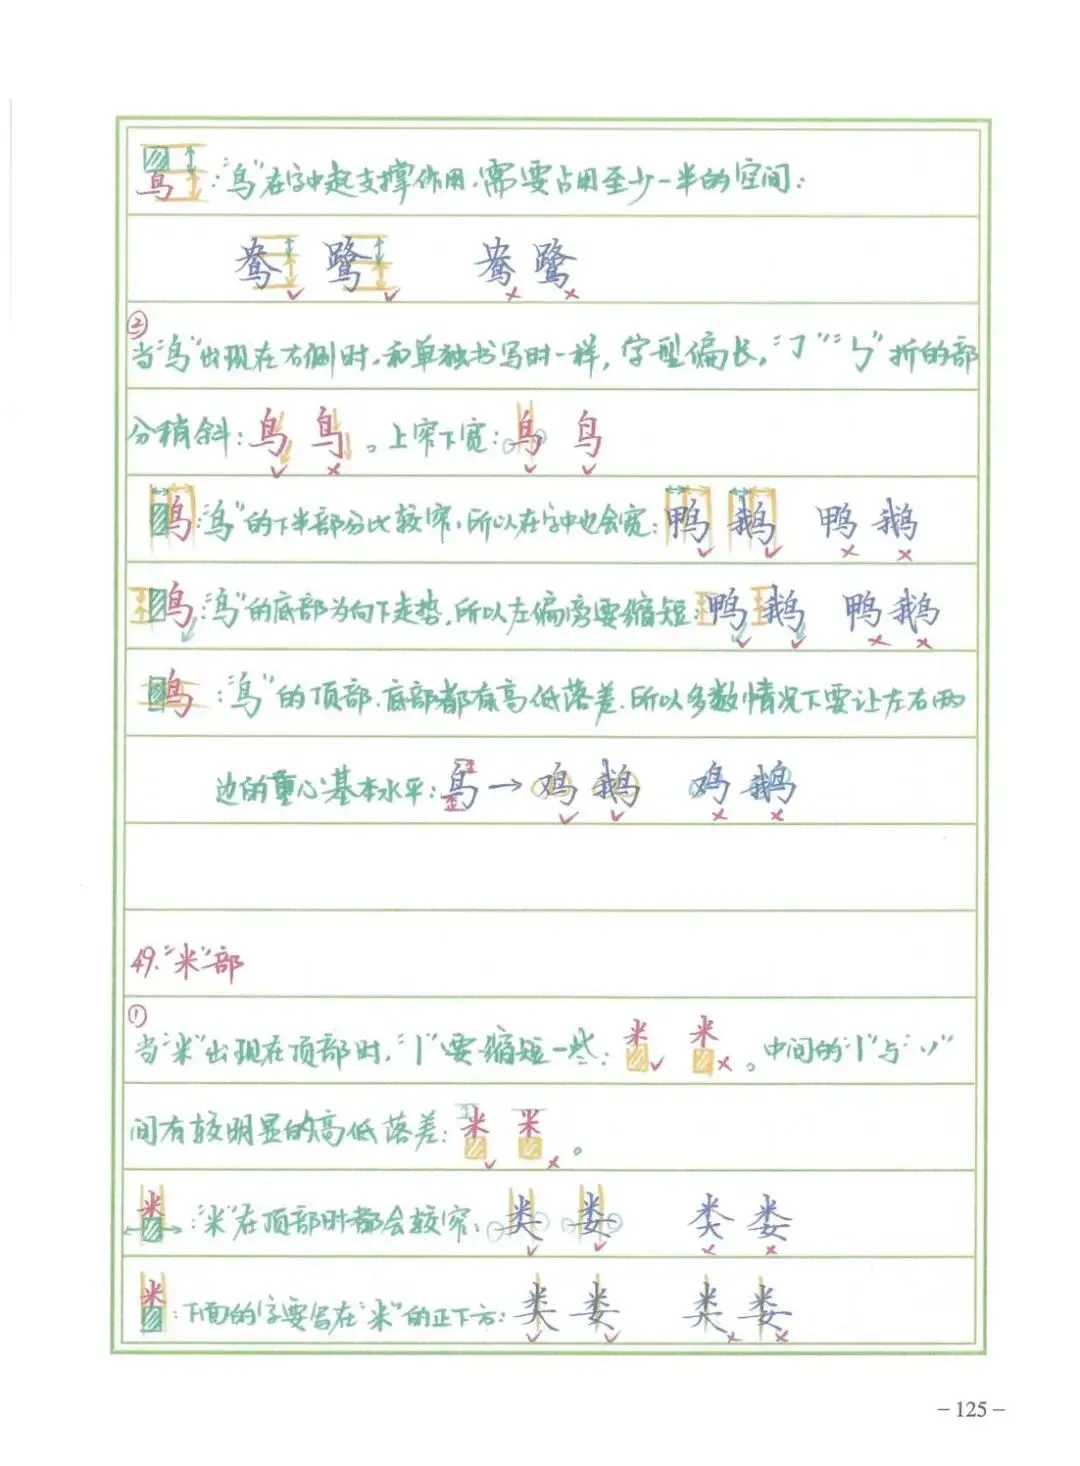 鸟:“鸟”在字中起支撑作用,需要占用至少一半的空间:
鸯 鹭 鸯 鹭
②
当“鸟”出现在右侧时,和单独书写时一样,字型偏长,“㇆”“㇉”折的部
分稍斜:鸟 鸟。上窄下宽:鸟 鸟
鸟:“鸟”的下半部分比较宽,所以在字中也会宽:鸭 鹅 鸭 鹅
鸟:“鸟”的底部为向下走势,所以左偏旁要缩短:鸭 鹅 鸭 鹅
鸟:“鸟”的顶部.底部都有高低落差.所以多数情况下要让左右两
边的重心基本水平:鸟→鸡 鹅 鸡 鹅
49.“米”部
①
当“米”出现在顶部时,“丨”要缩短一些:米 米。中间的“丨”与“丷”
间有较明显的高低落差:米 米。
米:“米”在顶部时都会较窄:类 娄 类 娄
米:下面的字要写在“米”的正下方:类 娄 类 娄
– 125 –